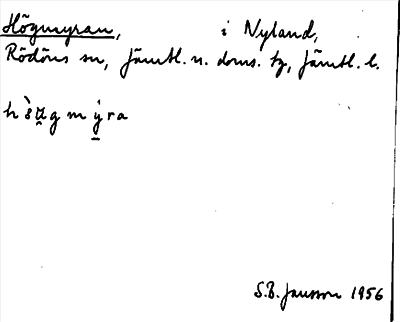 Högmyran, i Nyland,
Rödöns sn, Jämtl. n. doms. tg, Jämtl. l.
S.B. Jansson 1956